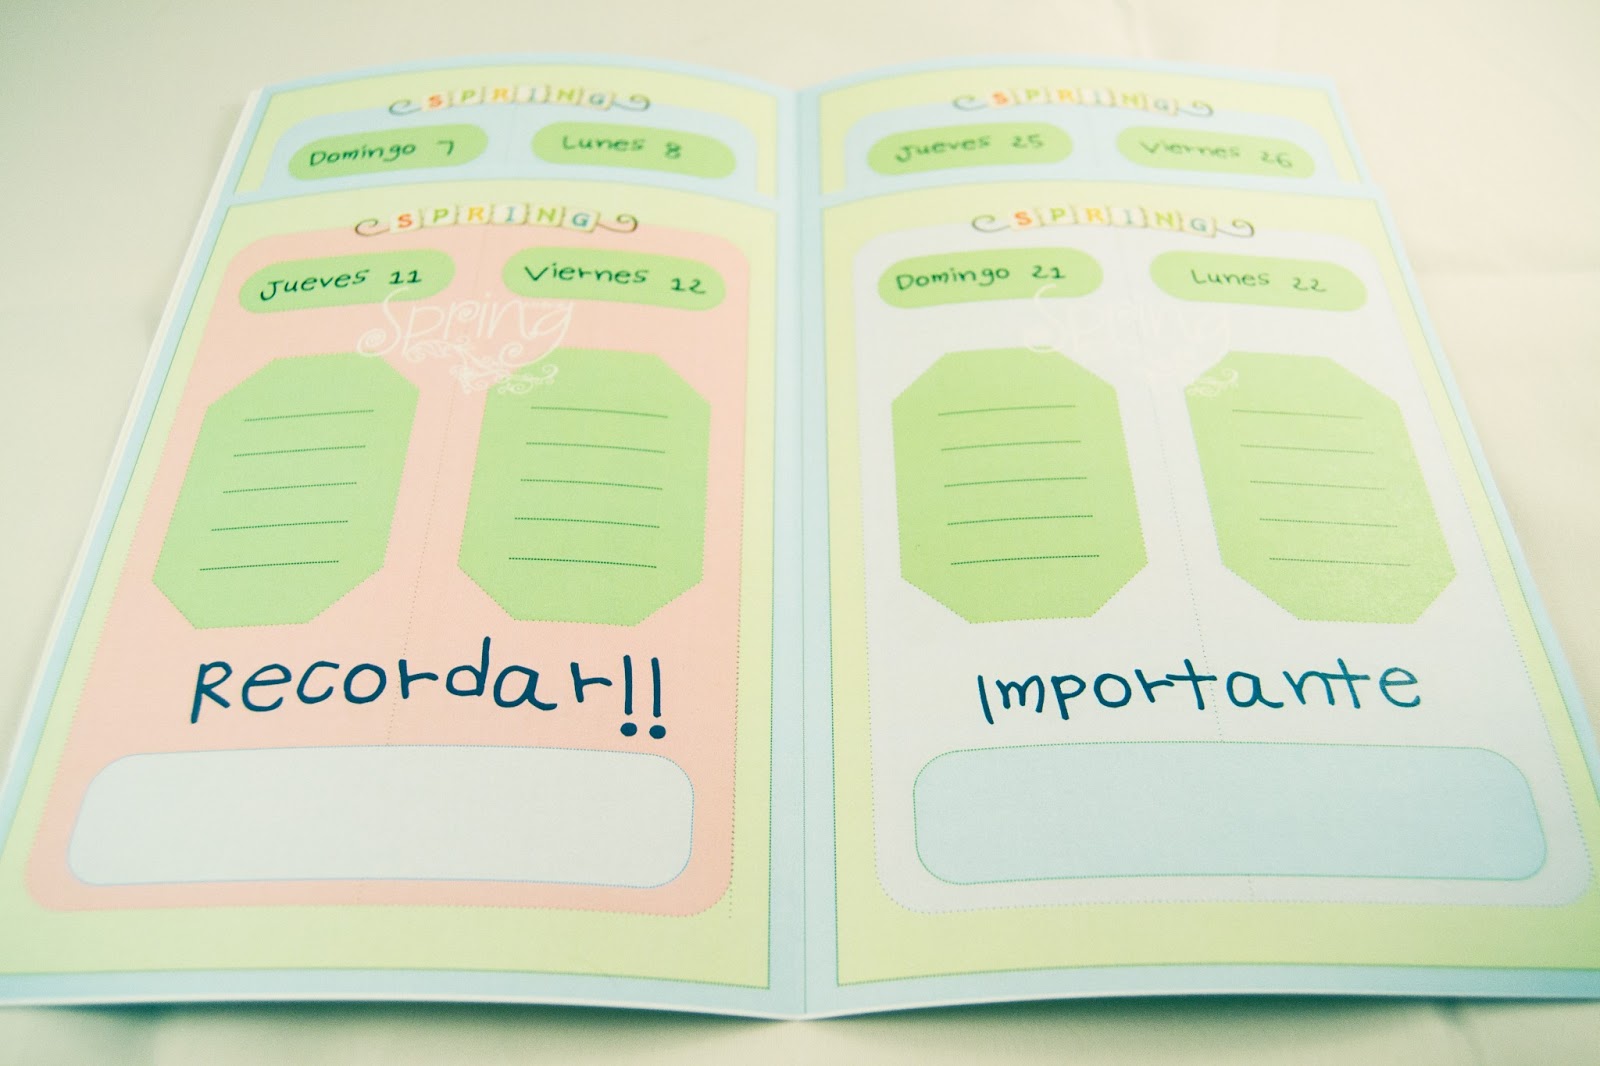 SPRING
Domingo 7
Lunes 8
SPRING
Jueves 11
Viernes 12
Spring
Recordar!!
SPRING
Jueves 25
Viernes 26
SPRING
Domingo 21
Lunes 22
Spring
Importante